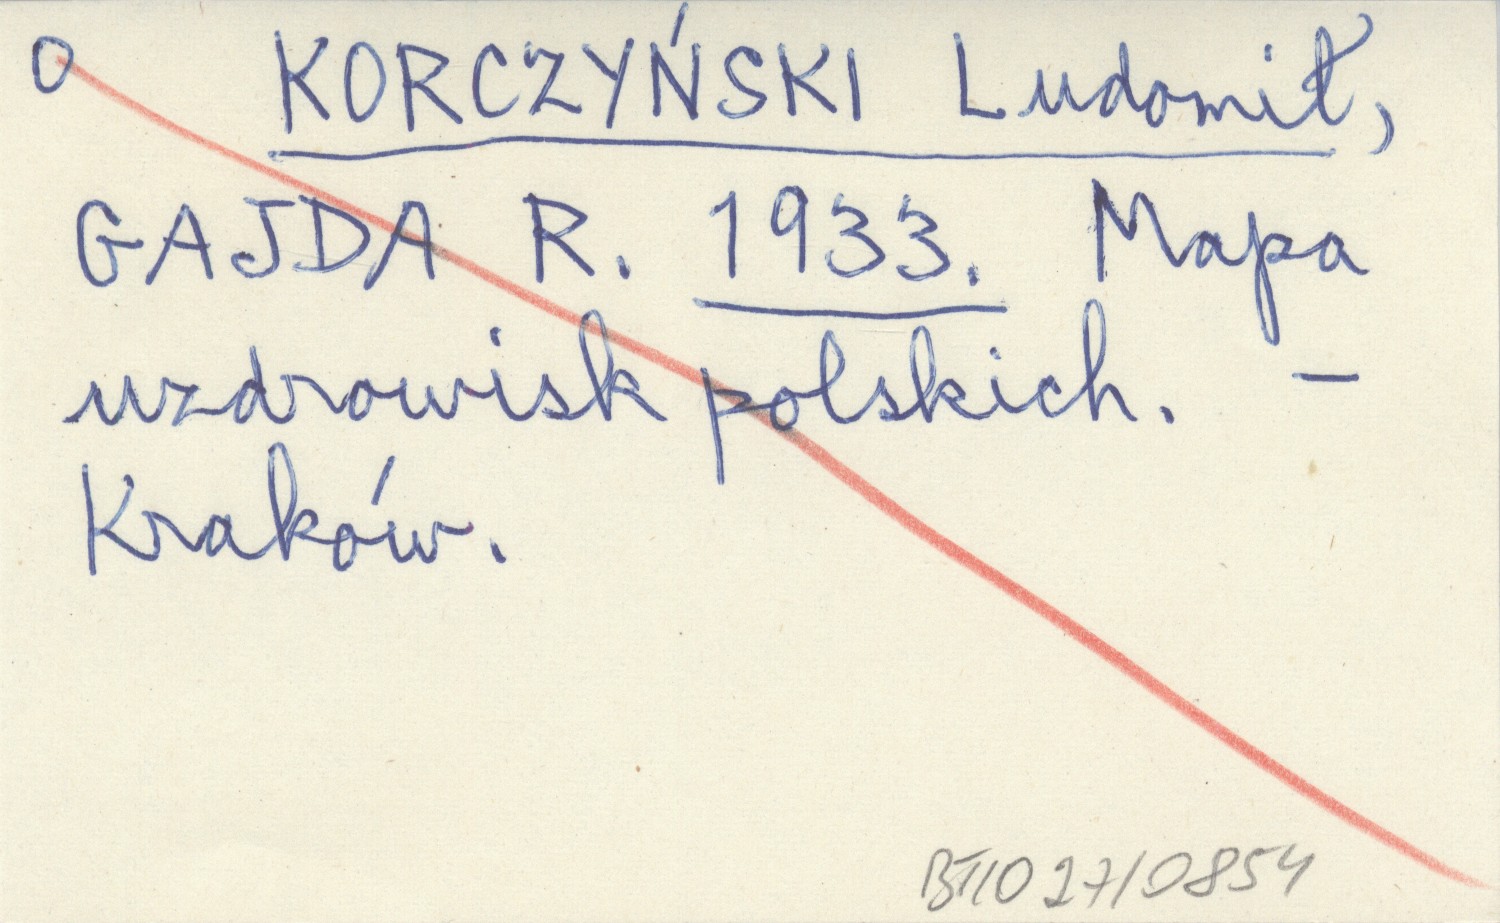 O KORCZYŃSKI Ludomił,
GAJDA R. 1933. Mapa
uzdrowisk polskich. –
Kraków.
BTIO 27/0854